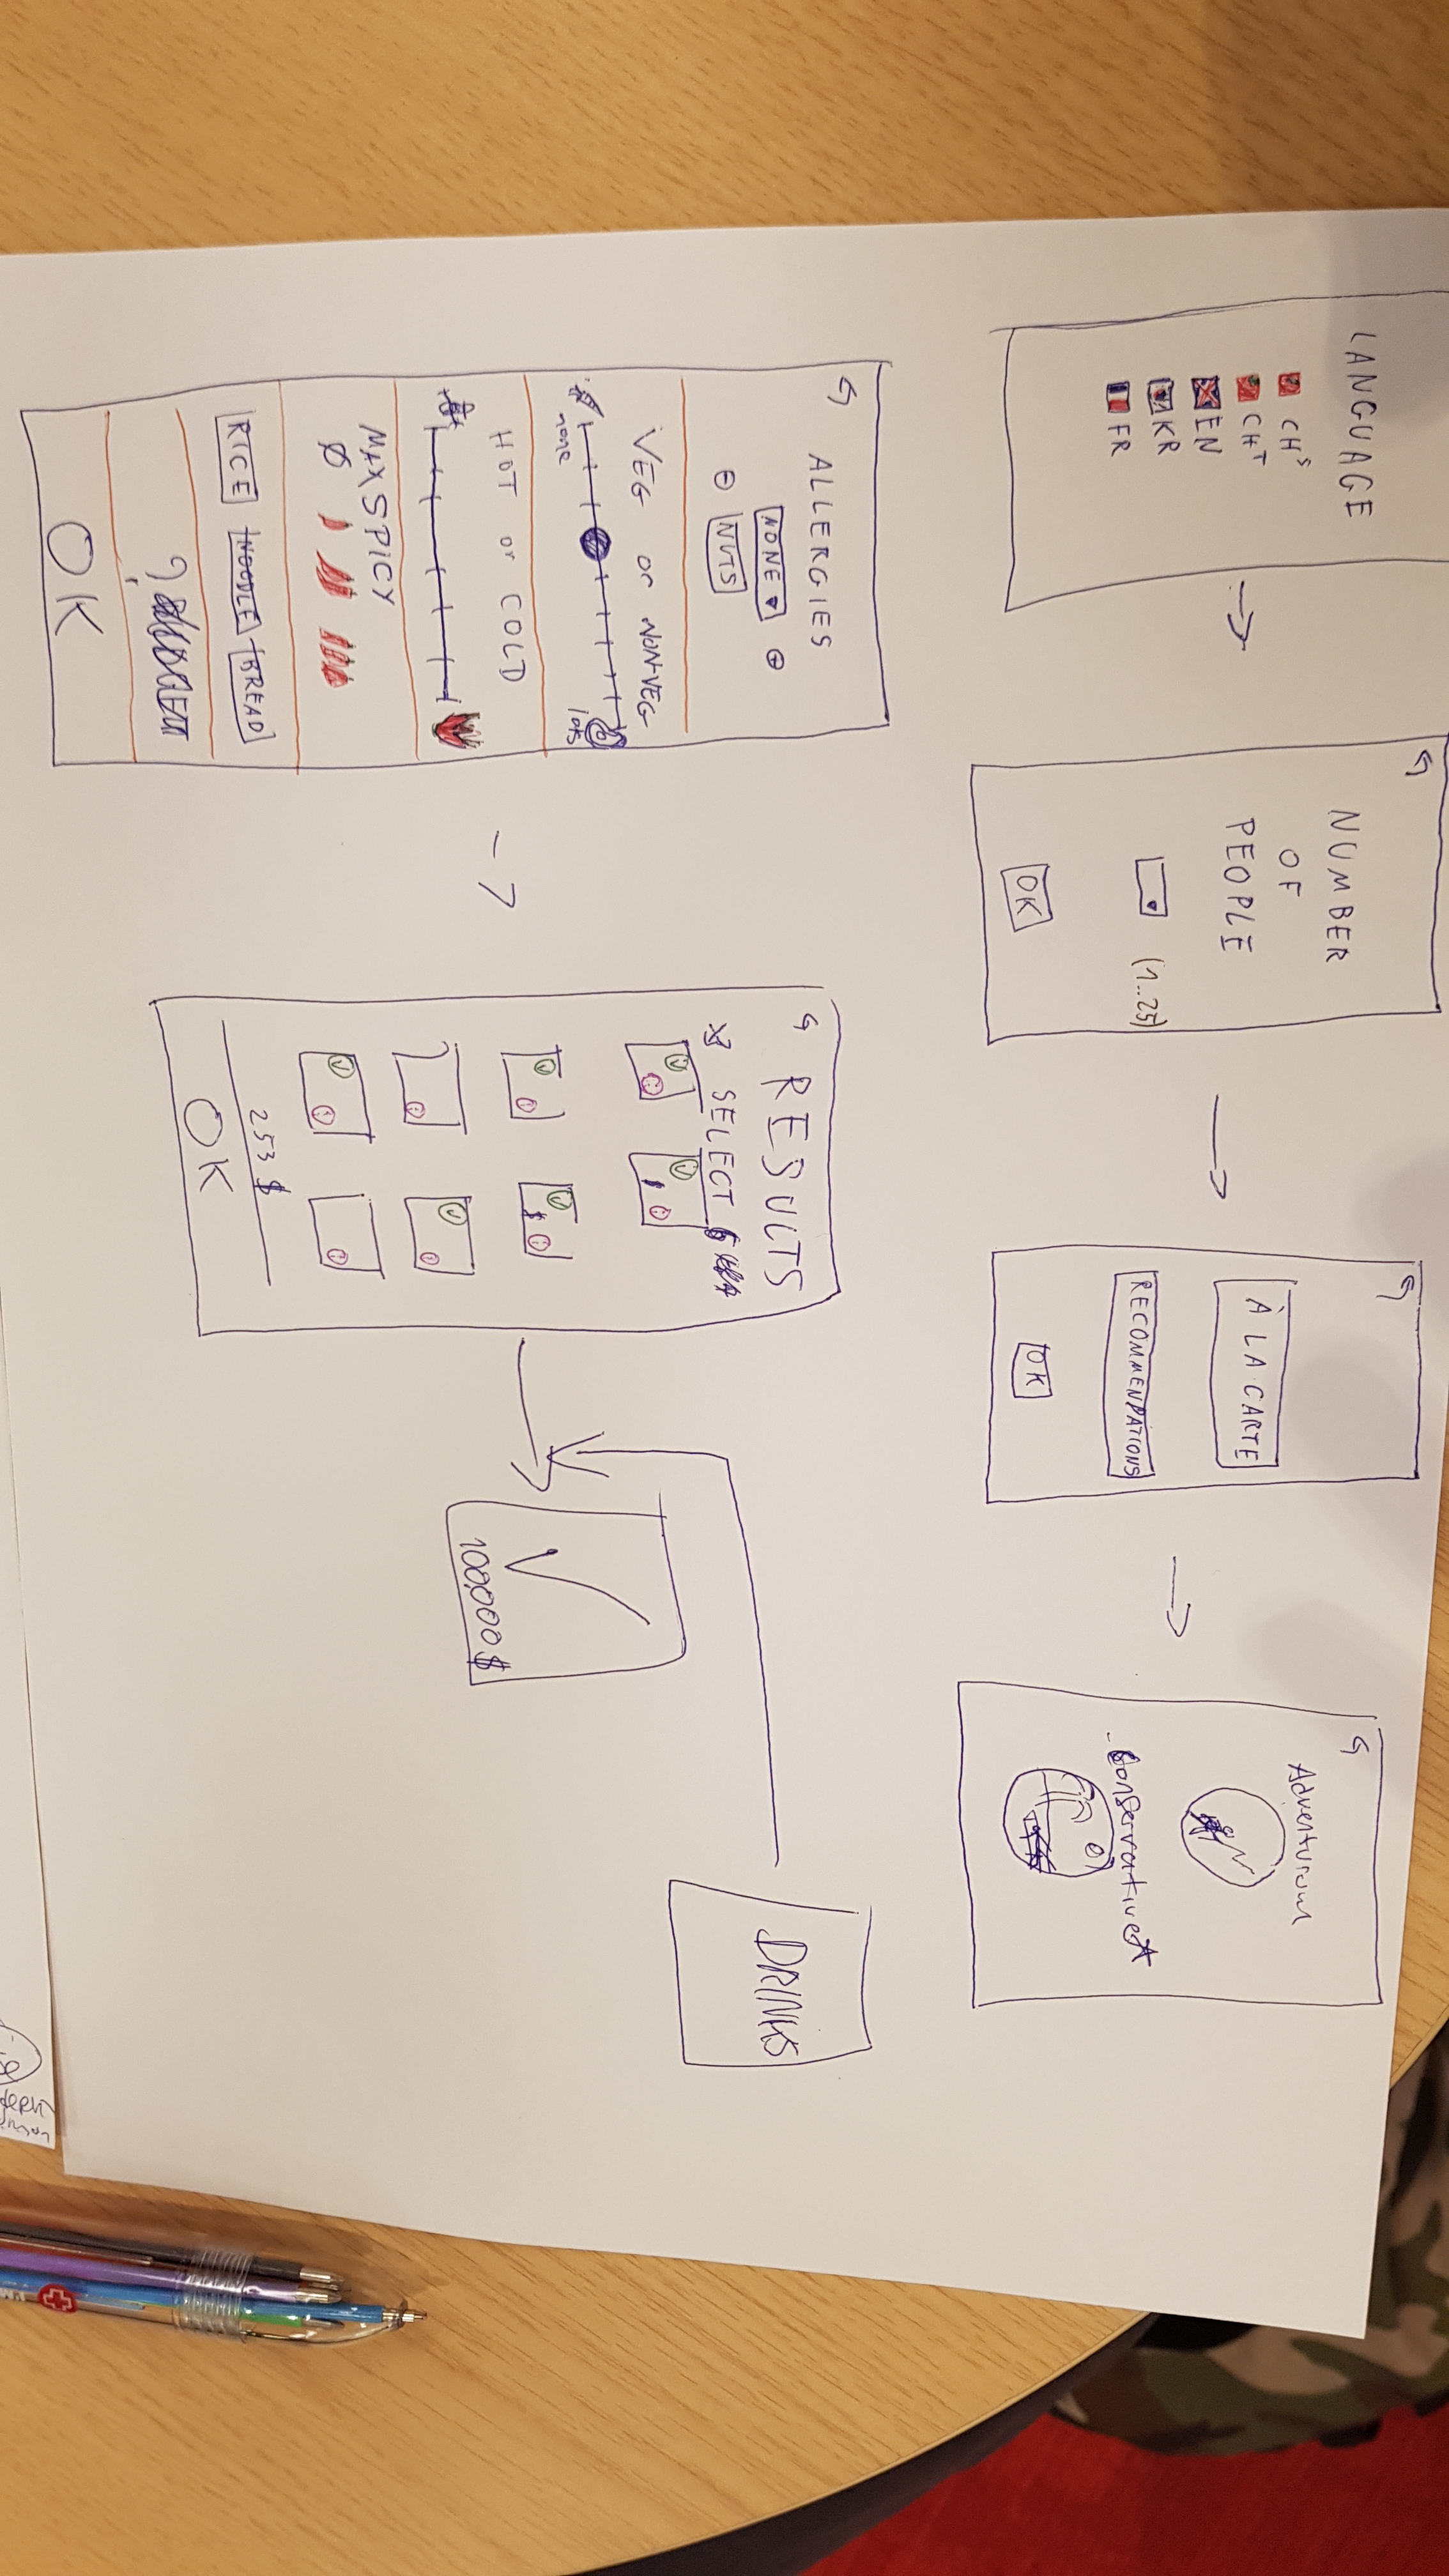 LANGUAGE
CH S
CH T
EN
KR
FR
NUMBER
OF
PEOPLE
(1..25)
OK
À LA CARTE
RECOMMENDATIONS
OK
Adventurous
Conservative
ALLERGIES
NONE
NUTS
VEG or NON-VEG
none
lots
HOT or COLD
MAX SPICY
Ø
RICE NOODLE BREAD
?
OK
RESULTS
SELECT
253 $
OK
100,000 $
DRINKS